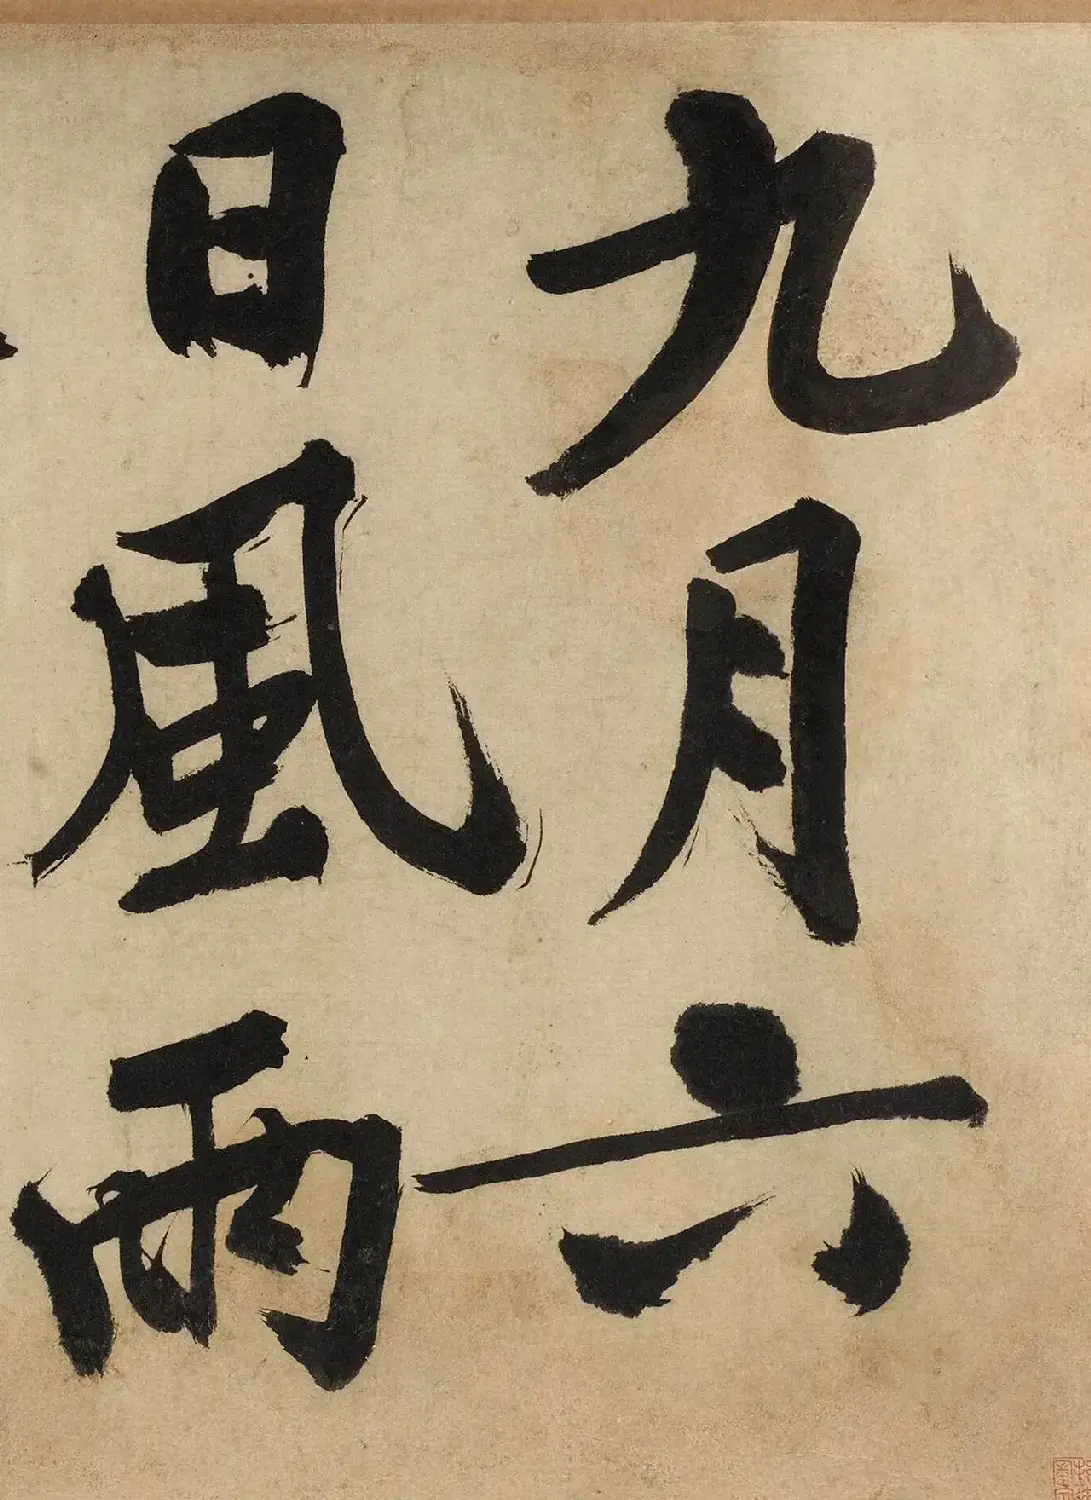 九月六
日風雨